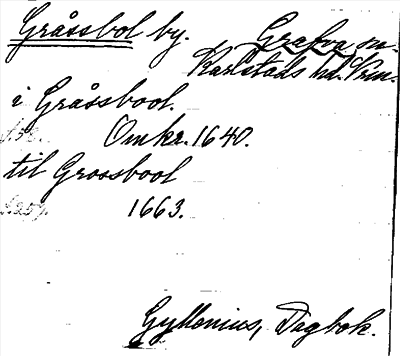 Gråssbol by. Grafva sn.
Karlstads hd. Vrm.
i Gråssbool.
s. 52. Omkr. 1640.
til Grossbool
s. 257. 1663.
Gyllenius, Dagbok.